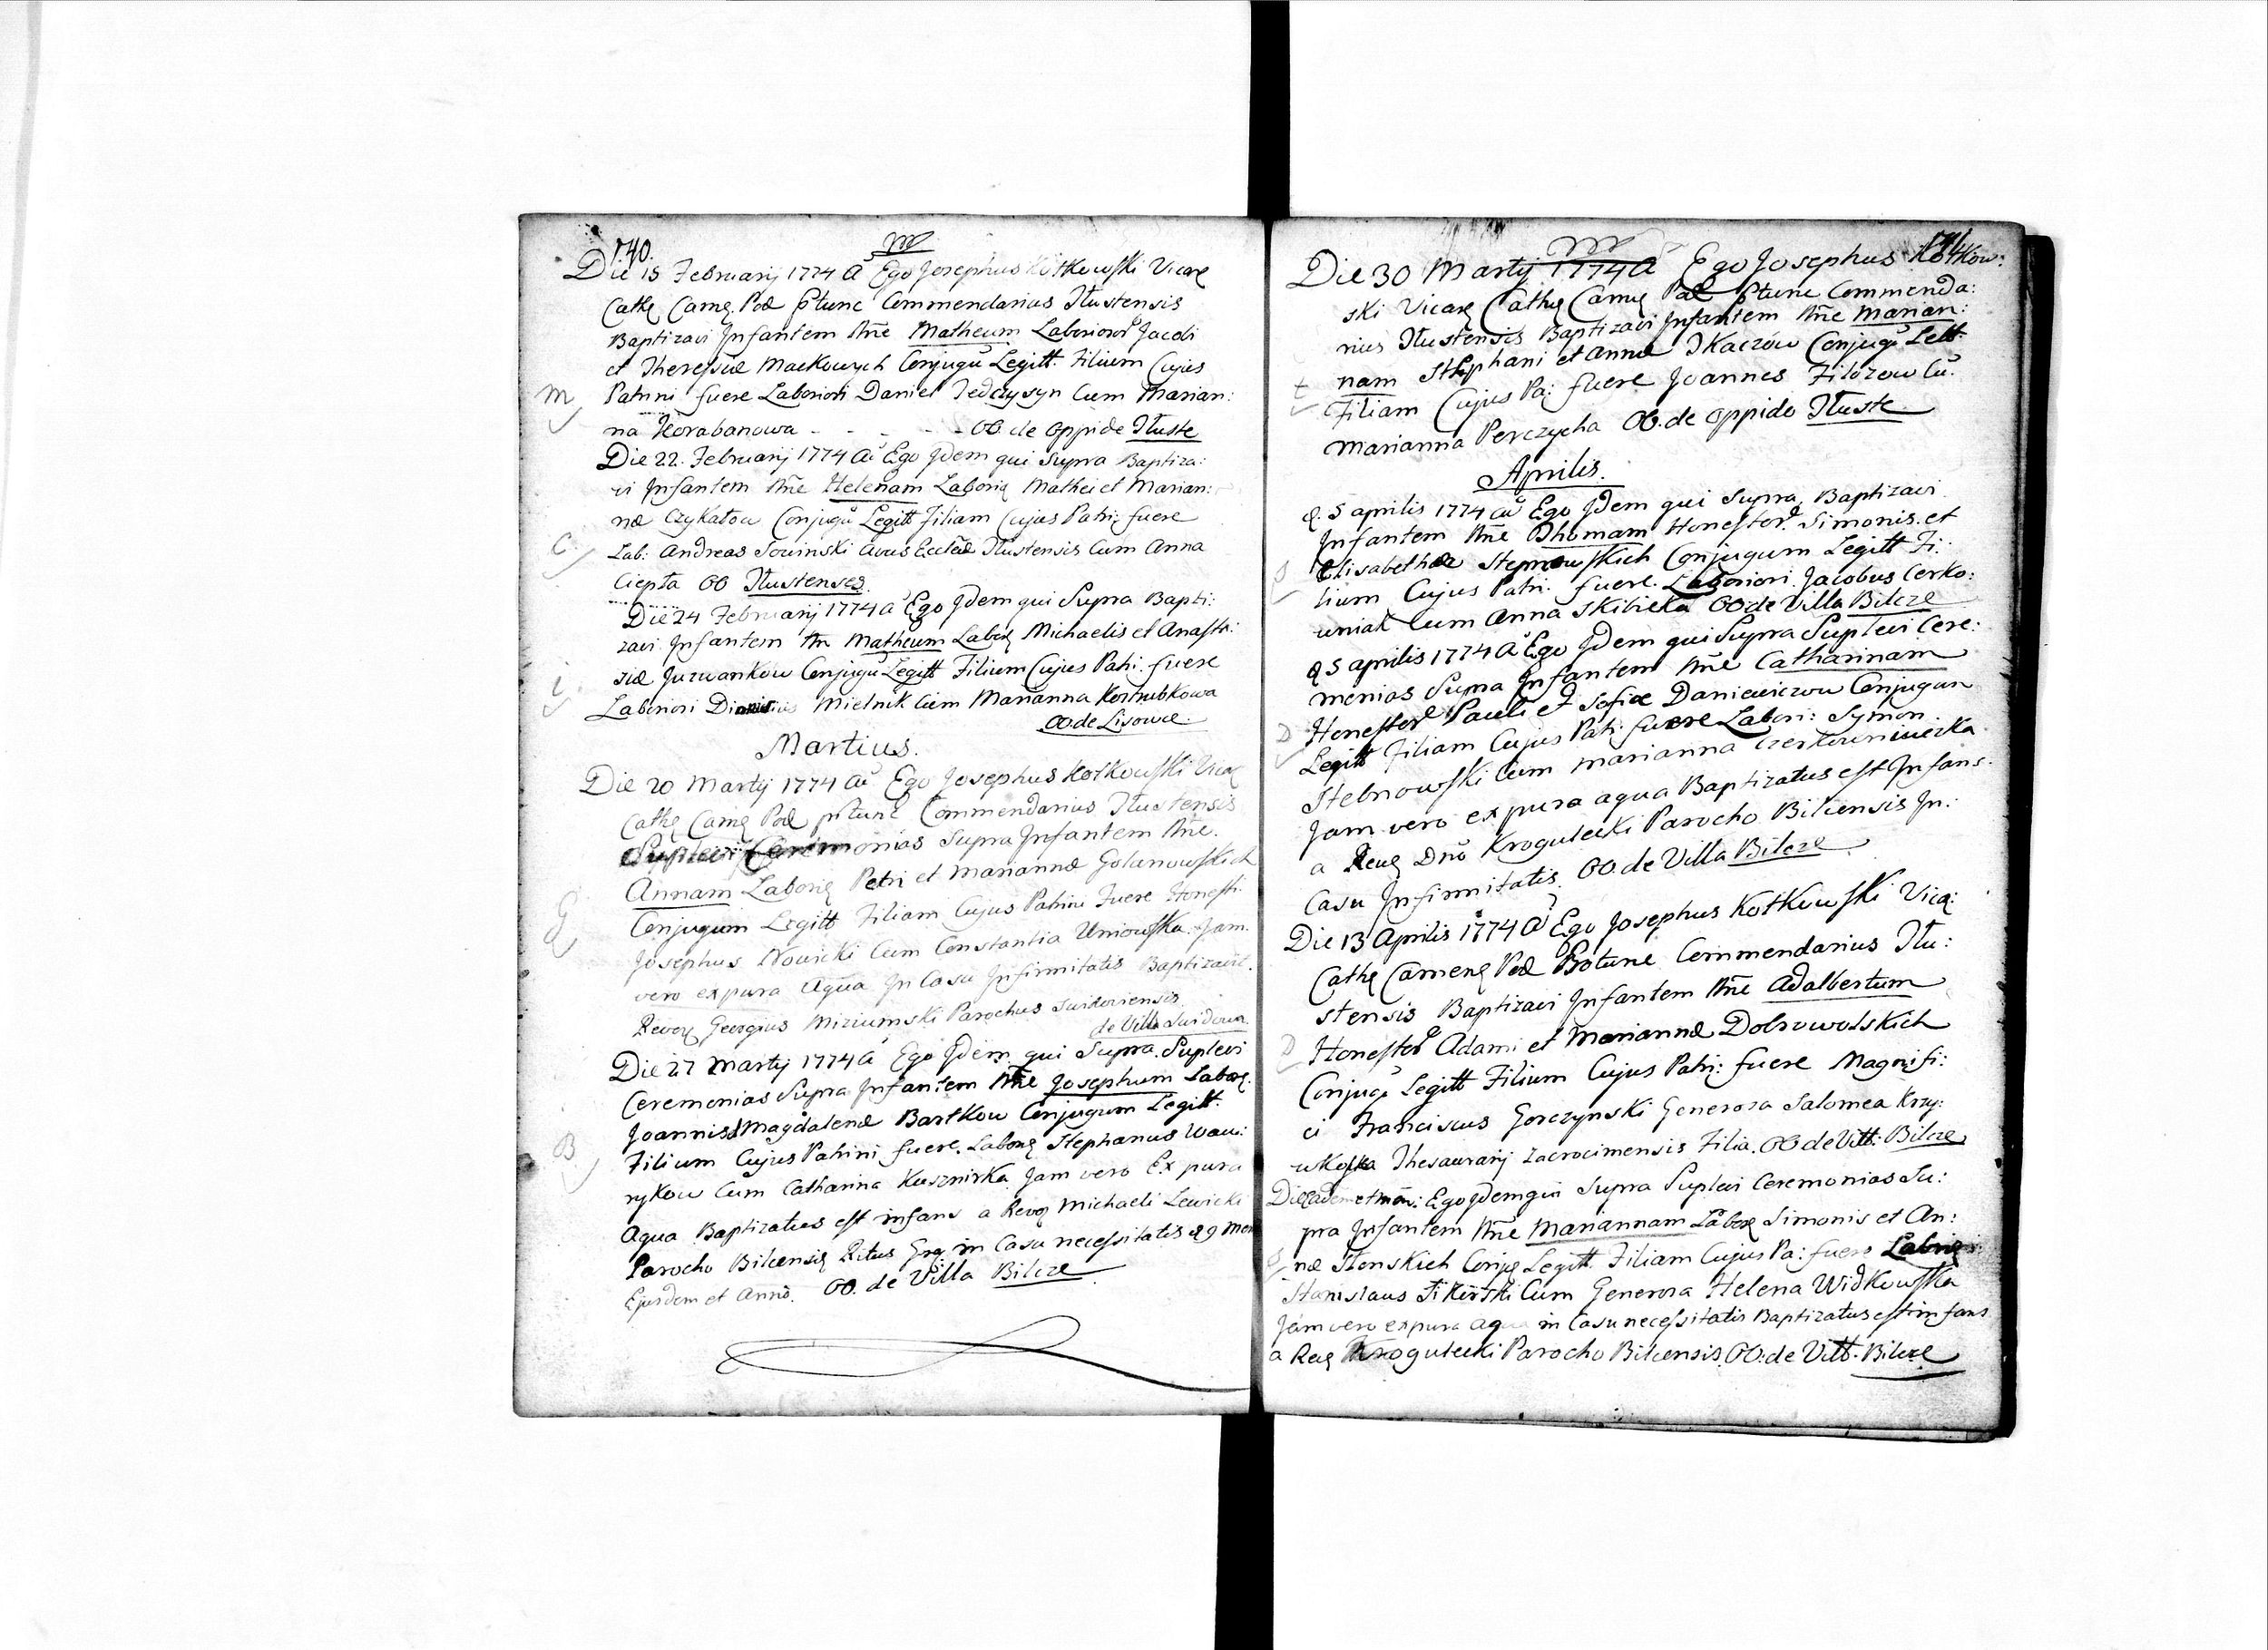 140.
Die 15 Februarij 1774 A Ego Josephus Kotkowski Vicar
Cath Came. Pod ptunc Commendarius Tłustensis
Baptizavi Infantem Nne Matheum Laborior Jacobi
et Theressiæ Mackowych Conjugu Legitt. Filium Cujus
M Patrini fuere Laboriosi Daniel Fedczysyn Cum Marian:
na Horabanowa - - - - OO. de Oppido Tłuste
Die 22. Februarij 1774 A Ego Jdem qui Supra Baptiza:
vi Infantem Nne Helenam Labori Mathei et Marian:
næ Czykałou Conjugu Legitt Filiam Cujus Patri fuere
C Lab: Andreas Sowinski Avus Eccleæ Tłustensis Cum Anna
Ciepła OO Tłustenses.
Die 24 Februarij 1774 a Ego Jdem qui Supra Bapti:
zavi Infantem Nn Matheum Labor Michaelis et Anasta:
siæ Juzwankow Conjugu Legitt Filium Cujus Patri. fuere
Laboriosi Mielnik Cum Marianna Korhubkowa
OO de Lisowce.
Martius.
Die 20 Martij 1774 A Ego Josephus Kotkowski Vicar
Cath Came Pod ptunc Commendarius Tłustensis
Suplevi Ceremonias Supra Infantem Nne.
Annam Labori Petri et Mariannæ Golanowskich
G Conjugum Legitt Filiam Cujus Patrini Fuere Honesti
Josephus Nowicki Cum Constantia Uniowska. Jam.
vero ex pura Aqua In Casu Infirmitatis Baptizavit.
Revor Georgius Miziumski Parochus Swidoviensis
de Villa Swidowa.
Die 27 Martij 1774 A Ego Jdem qui Supra. Suplevi
Ceremonias Supra Infantem Nne Josephum Labor.
Joannis & Magdalenæ Bartkow Conjugum Legitt.
B Filium Cujus Patrini fuere. Labori Stephanus Waw:
rykow Cum Catharina Kusznirka Jam vero Ex pura
Aqua Baptizatus est infans a Revor Michaeli Lewicki
Parocho Bilcensis Ritus Grą. in Casu necessitatis d 9 Men
Ejusdem et Anno. OO. de Villa Bilcze.
141
Die 30 Martij 1774 A Ego Josephus Kotkow:
ski Vicar Cath Came Pod ptunc Commenda:
rius Tłustensis Baptizavi Infantem Nne Marian:
nam Stephani et Annæ Tkaczow Conjugu Legitt.
t Filiam Cujus Pa: fuere Joannes Filozow Cu.
Marianna Perczycha OO. de Oppido Tłuste
Aprilis.
d. 5 Aprilis 1774 A Ego Jdem qui Supra, Baptizavi
Infantem Nne Thomam Honestor Simonis. et
S Elisabethæ Stepnowskich Conjugum Legitt Fi:
lium Cujus Patri. fuere. Laboriosi Jacobus Cerko:
wniak Cum Anna Skibicka OO de Villa Bilcze
d 5 Aprilis 1774 A Ego Jdem qui Supra Suplevi Cere:
monias Supra Infantem Nne Catharinam
D Honestor Pauli et Sofiæ Daniewiczow Conjugum
Legitt Filiam Cujus Patri fuere Labori: Symon
Stebnowski Cum Marianna Czerkowniweska
Jam vero ex pura aqua Baptizatus est Infans.
a Rever Dno Krogulecki Parocho Bilcensis In.
Casu Infirmitatis. OO. de Villa Bilcze
Die 13 Aprilis 1774 A Ego Josephus Kotkowski Vica:
Cath Camene Pod Protunc Commendarius Tłu:
stensis Baptizavi Infantem Nne Adalbertum
D Honestor Adami et Mariannæ Dobrowolskich
Conjugu Legitt Filium Cujus Patri: fuere Magnifi:
ci Franciscus Gorczynski Generosa Salomea Krzy:
wkoska Thesaurarij Zacrocimensis Filia. OO de Vill: Bilcze
Die eadem et Men: Ego Jdem qui Supra Suplevi Ceremonias Su:
pra Infantem Nne Mariannam Labor Simonis et An:
S næ Stonskich Conju Legitt. Filiam Cujus Pa: fuere Labori
Stanislaus Fikerski Cum Generosa Helena Widkowska
Jam vero ex pura aqua in Casu necessitatis Baptizatus est infans
a Rev Krogulecki Parocho Bilcensis. OO: de Vill. Bilcze